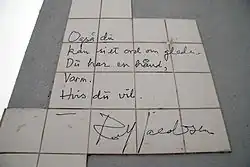 Også du
kan si et ord om gleden
Du har en hånd,
Varm.
Hvis du vil.
Rolf Jacobsen